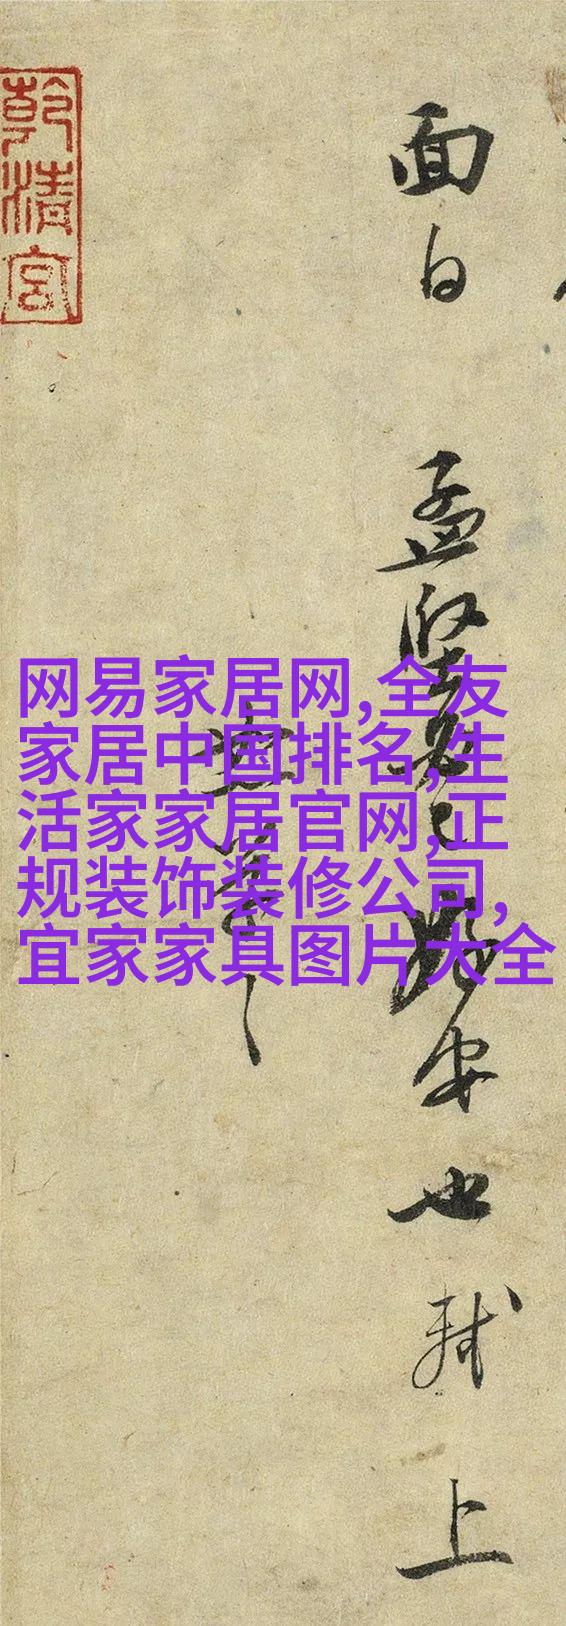 乾清宮
面白
孟堅必已好安也軾上
恕草草
网易家居网,全友
家居中国排名,生
活家家居官网,正
规装饰装修公司,
宜家家具图片大全